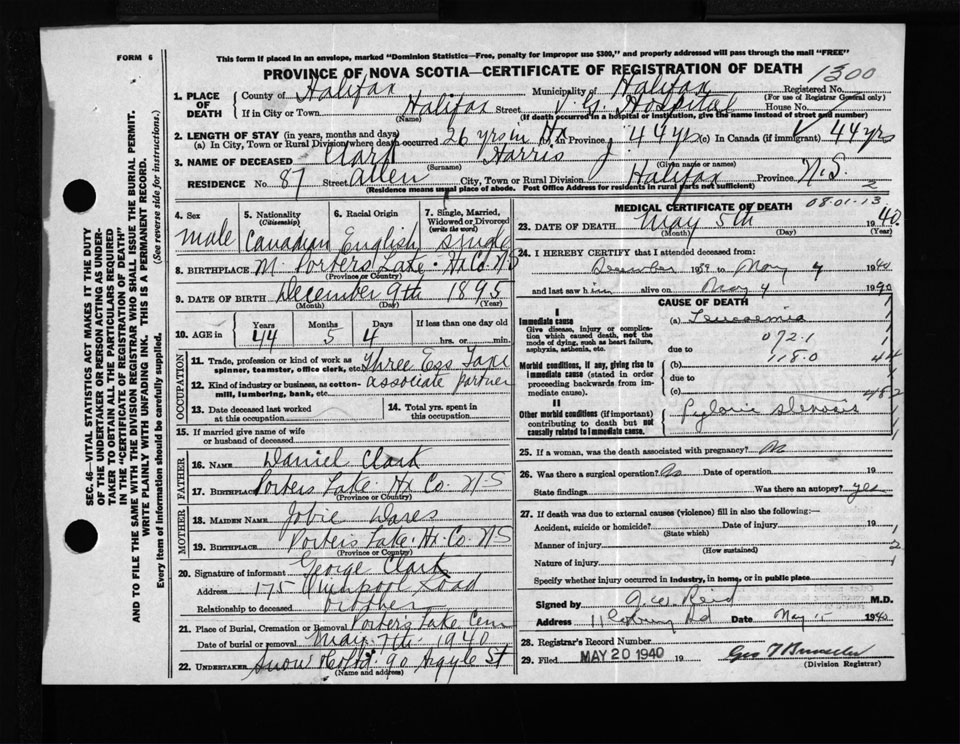 FORM 6
This form if placed in an envelope, marked "Dominion Statistics—Free, penalty for improper use $300," and properly addressed will pass through the mail "FREE"
PROVINCE OF NOVA SCOTIA—CERTIFICATE OF REGISTRATION OF DEATH
1300
1. PLACE OF DEATH
County of Halifax Municipality of Halifax Registered No.
(For use of Registrar General only)
If in City or Town Halifax Street V.G. Hospital House No.
(Name) (If death occurred in a hospital or institution, give the name instead of street and number)
2. LENGTH OF STAY (in years, months and days)
(a) In City, Town or Rural Division where death occurred 26 yrs in Hx (b) In Province 44 yrs (c) In Canada (if immigrant) 44 yrs
3. NAME OF DECEASED Clark Harris J
(Surname) (Given name or names)
RESIDENCE No. 87 Street Allen City, Town or Rural Division Halifax Province N.S.
(Residence means usual place of abode. Post Office Address for residents in rural parts not sufficient) 2
4. Sex
male
5. Nationality (Citizenship)
Canadian
6. Racial Origin
English
7. Single, Married, Widowed or Divorced (write the word)
single
8. BIRTHPLACE Porters Lake Hx Co. N.S
(Province or Country)
9. DATE OF BIRTH December 9th 1895
(Month) (Day) (Year)
10. AGE in
Years Months Days If less than one day old
44 5 4 hrs. or min.
OCCUPATION
11. Trade, profession or kind of work as spinner, teamster, office clerk, etc. Three Ess Taxi
12. Kind of industry or business, as cotton-mill, lumbering, bank, etc. associate partner
13. Date deceased last worked at this occupation
14. Total yrs. spent in this occupation
15. If married give name of wife or husband of deceased
FATHER
16. NAME Daniel Clark
17. BIRTHPLACE Porters Lake Hx Co. N.S
(Province or Country)
MOTHER
18. MAIDEN NAME
19. BIRTHPLACE Porters Lake Hx. Co. N.S
(Province or Country)
20. Signature of informant George Clark
Address 175 Road
Relationship to deceased brother
21. Place of Burial, Cremation or Removal Porters Lake Cem
Date of burial or removal May 7th 1940
22. UNDERTAKER Snow 90 Argyle St
(Name and address)
MEDICAL CERTIFICATE OF DEATH 08.01.13
23. DATE OF DEATH May 5th 1940
(Month) (Day) (Year)
24. I HEREBY CERTIFY that I attended deceased from:
December 1939 to May 4 1940
and last saw him alive on May 4 1940
CAUSE OF DEATH
I
Immediate cause
Give disease, injury or complication which caused death, not the mode of dying, such as heart failure, asphyxia, asthenia, etc.
(a) Leucaemia
072.1
due to 118.0 44
Morbid conditions, if any, giving rise to immediate cause (stated in order proceeding backwards from immediate cause).
(b)
due to
(c)
II
Other morbid conditions (if important) contributing to death but not causally related to immediate cause.
Pyloric stenosis
25. If a woman, was the death associated with pregnancy?
26. Was there a surgical operation? No Date of operation 19
State findings Was there an autopsy? yes
27. If death was due to external causes (violence) fill in also the following:—
Accident, suicide or homicide? Date of injury 19
(State which)
Manner of injury 2
(How sustained)
Nature of injury 1
Specify whether injury occurred in industry, in home, or in public place
Signed by G.W. Reid M.D.
Address 11 Coburg Rd Date May 1940
28. Registrar's Record Number
29. Filed MAY 20 1940 19
(Division Registrar)
SEC. 46—VITAL STATISTICS ACT MAKES IT THE DUTY
OF THE UNDERTAKER OR PERSON ACTING AS UNDER-
TAKER TO OBTAIN ALL THE PARTICULARS REQUIRED
IN THE "CERTIFICATE OF REGISTRATION OF DEATH"
AND TO FILE THE SAME WITH THE DIVISION REGISTRAR WHO SHALL ISSUE THE BURIAL PERMIT.
WRITE PLAINLY WITH UNFADING INK. THIS IS A PERMANENT RECORD.
Every item of information should be carefully supplied. (See reverse side for instructions.)